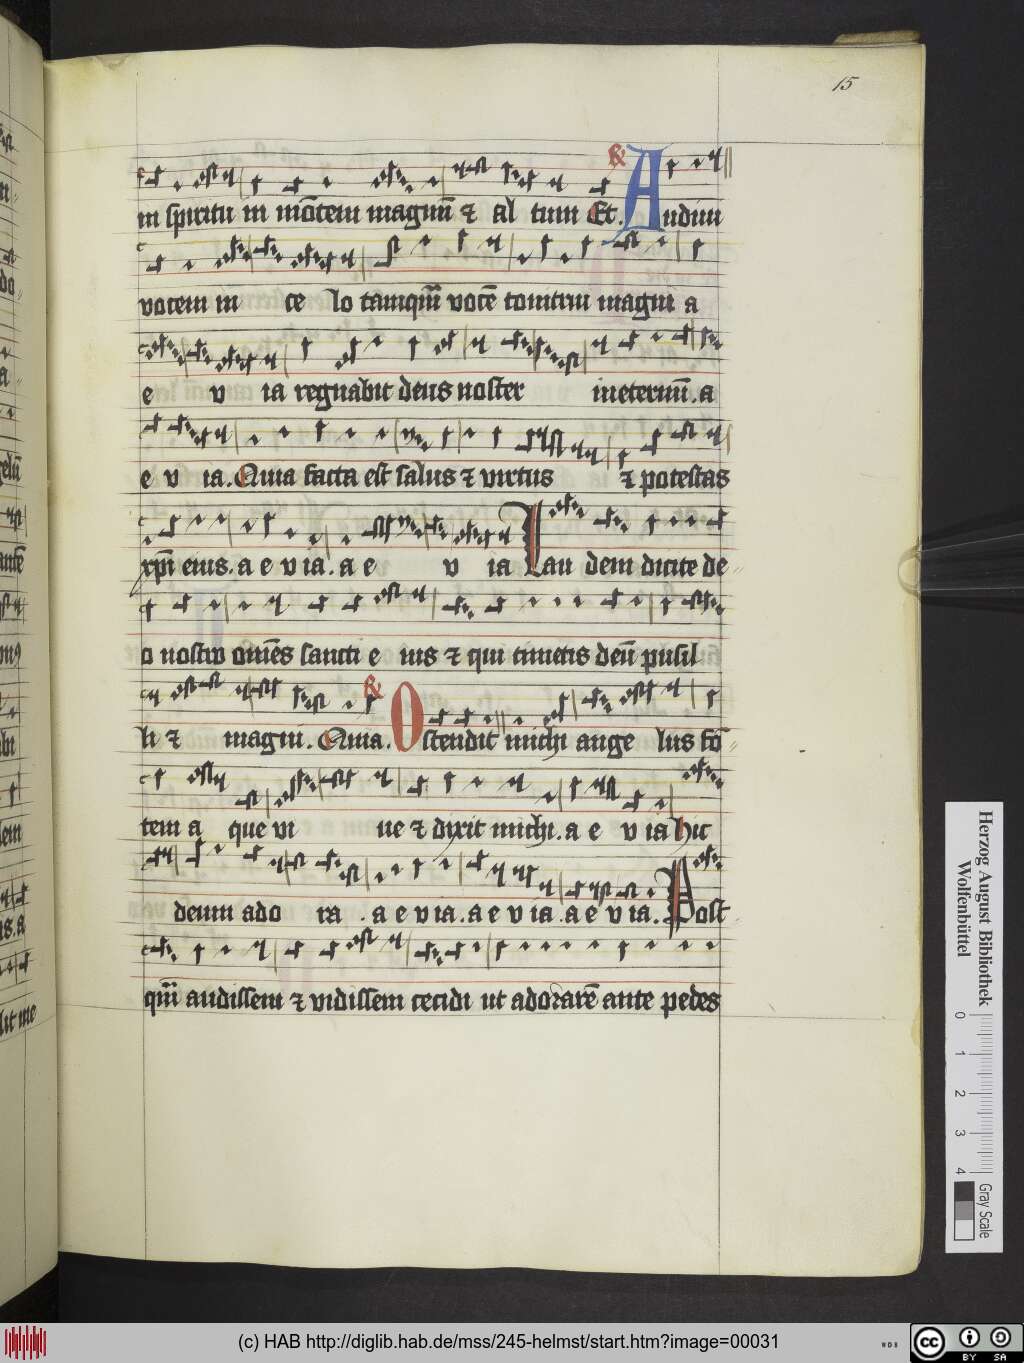 15
in spiritu in mōtem magnū ⁊ al tum Et. Audiui
vocem in ce lo tamqm̄ vocē tonitrui magni a
e v ia regnabit deus noster ineternū. a
e v ia. Quia facta est salus ⁊ virtus ⁊ potestas
xpi eius. a e v ia. a e v ia Lau dem dicite de
o nostro om̄es sancti e ius ⁊ qui timetis deū pusil
li ⁊ magni. Quia. Ostendit michi ange lus fō
tem a que vi ue ⁊ dixit michi. a e v ia hic
deum ado ra . a e v ia. a e v ia. a e v ia. Post
qm̄ audissem ⁊ vidissem cecidi ut adorarē ante pedes
Herzog August Bibliothek
Wolfenbüttel
0 1 2 3 4
Gray Scale
(c) HAB http://diglib.hab.de/mss/245-helmst/start.htm?image=00031
WDB
cc BY SA